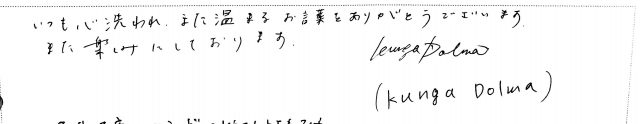 いつも心洗われ、また温まるお言葉をありがとうございます。
また楽しみにしております。
Kunga Dolma
(Kunga Dolma)